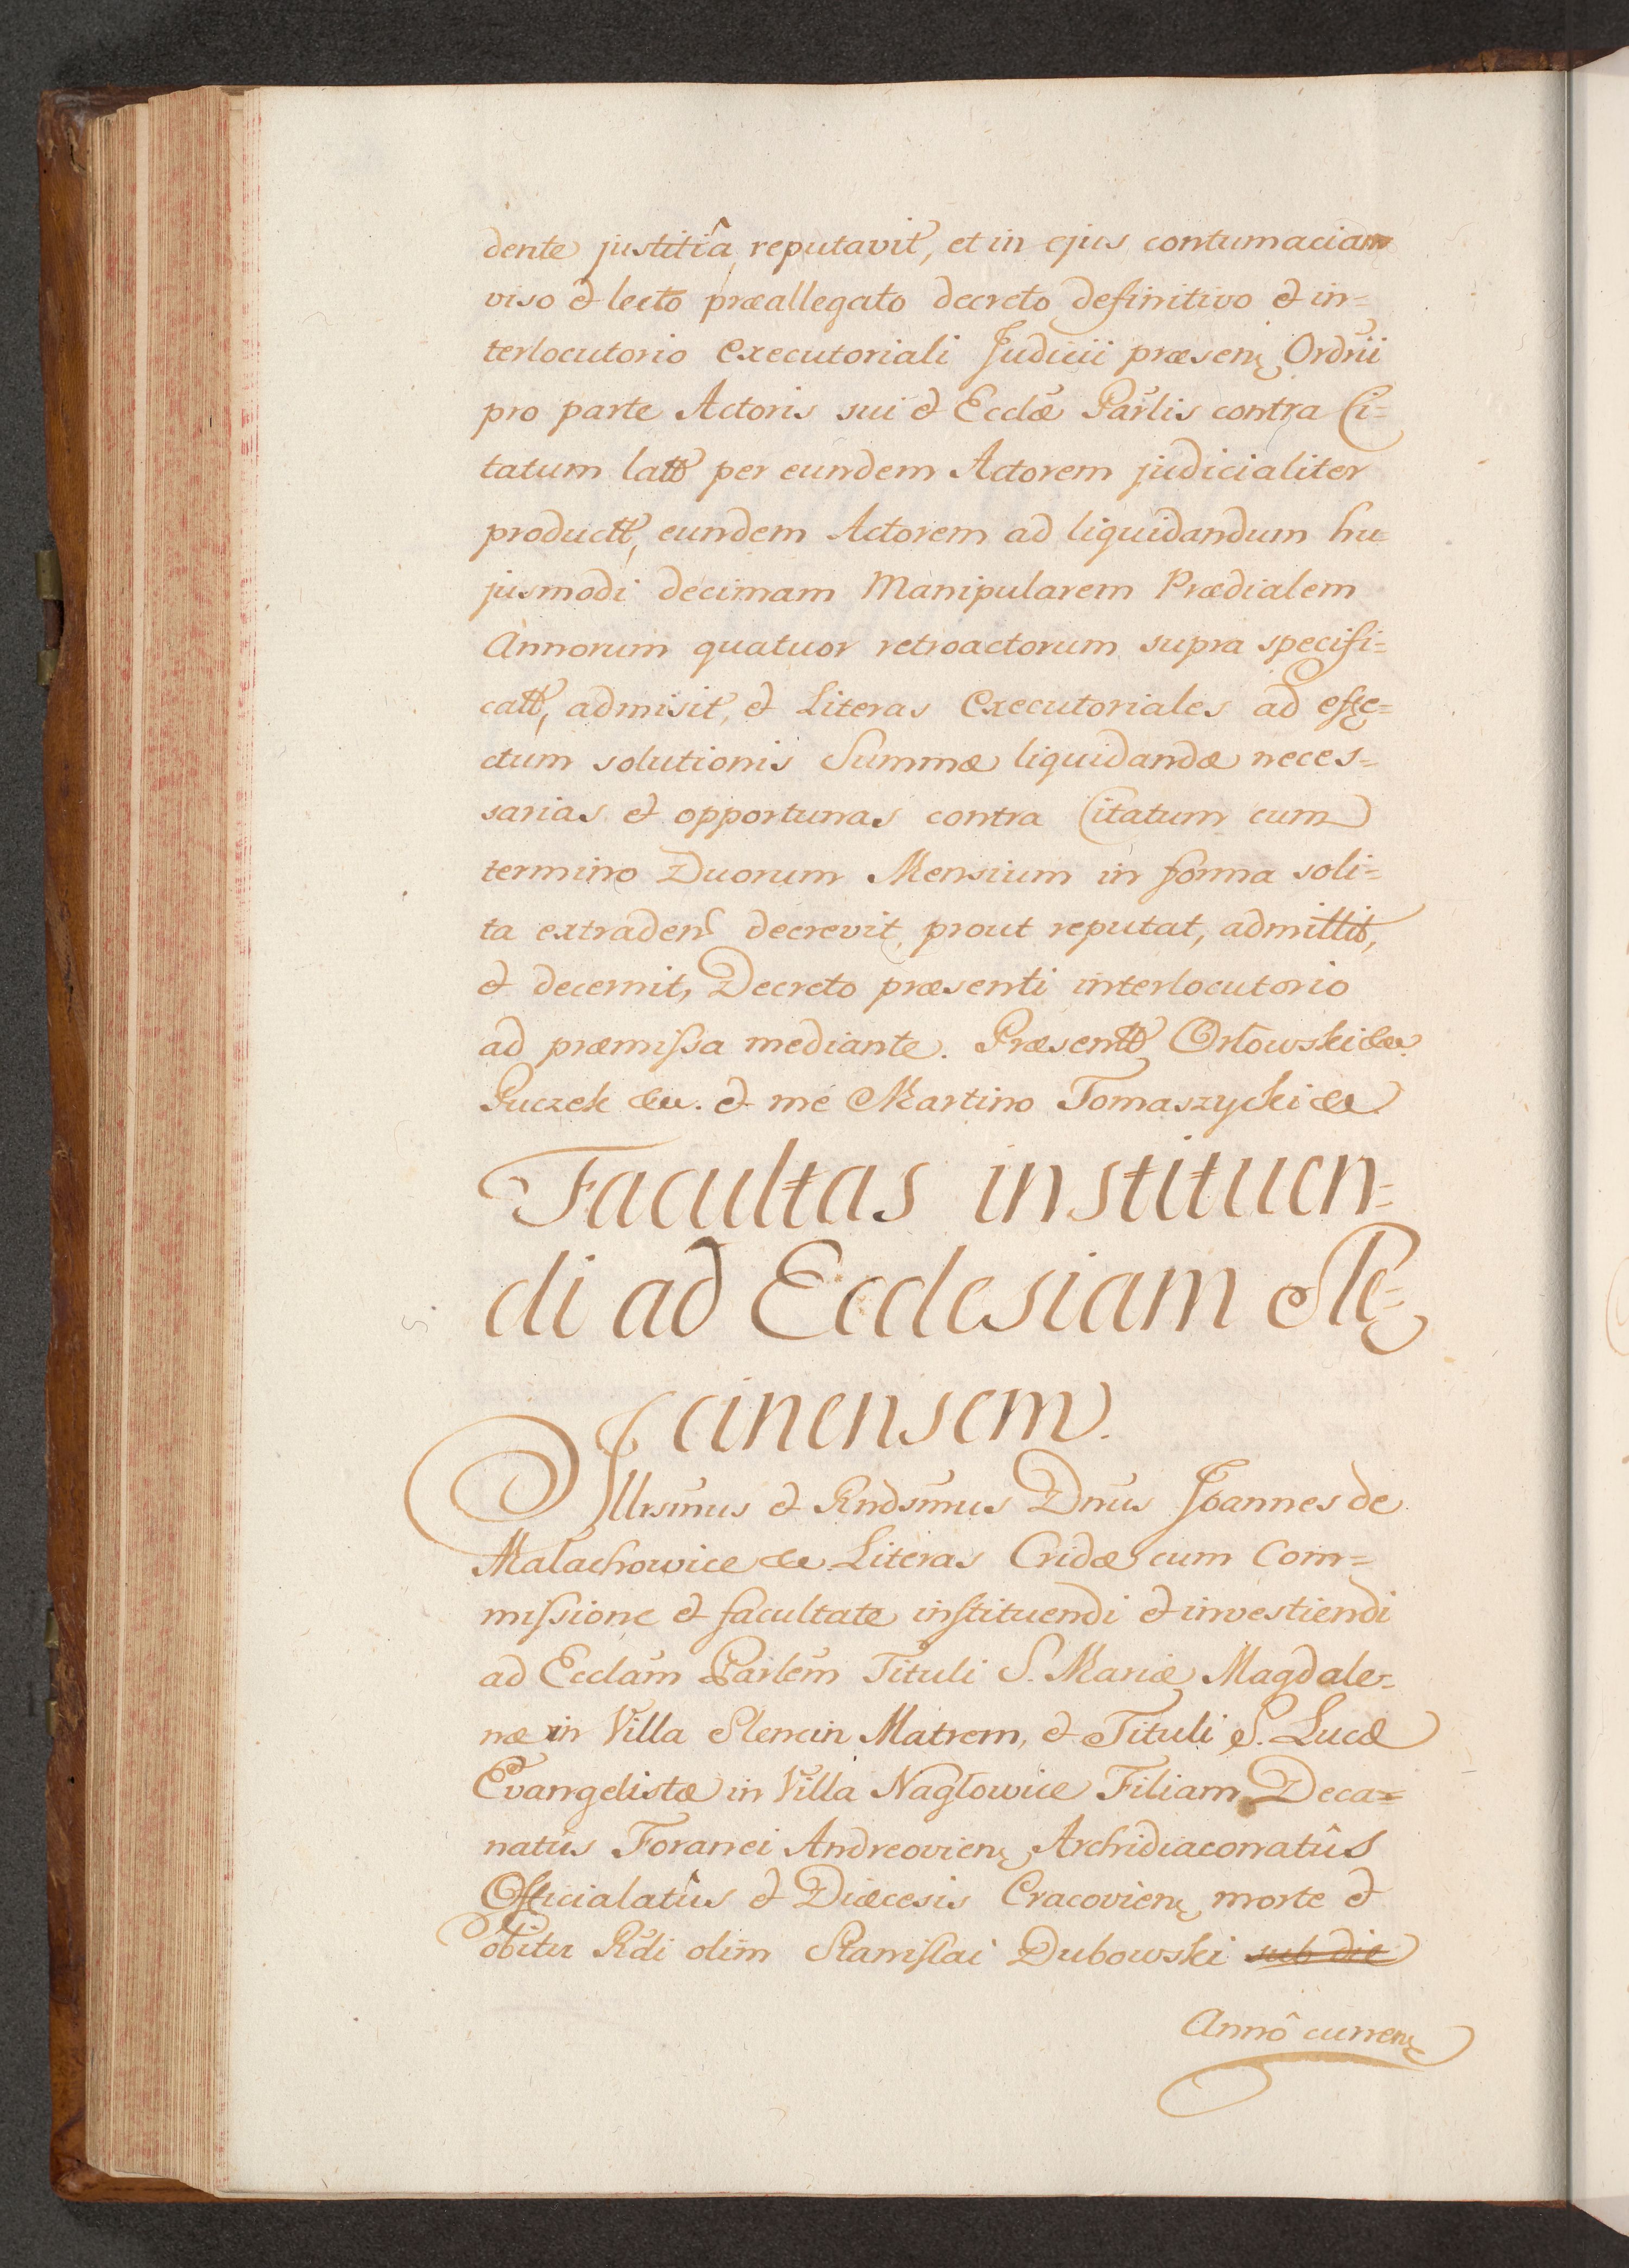 dente justitiâ reputavit, et in ejus contumaciam
viso & lecto præallegato decreto definitivo & in=
terlocutorio Executoriali Judicii præsenę Ordrii
pro parte Actoris sui & Ecclæ Parlis contra Ci=
tatum latt per eundem Actorem judicialiter
productt, eundem Actorem ad liquidandum hu=
jusmodi decimam Manipularem Prædialem
Annorum quatuor retroactorum supra specifi=
catt, admisit, & Literas Executoriales ad effe=
ctum solutionis Summæ liquidandæ neces=
sarias & opportunas contra Citatum cum
termino Duorum Mensium in forma soli=
ta extraden decrevit, prout reputat, admittit,
& decernit, Decreto præsenti interlocutorio
ad præmissa mediante. Præsentt Orłowski &c.
Puczek &c. & me Martino Tomaszycki &c.
Facultas instituen=
di ad Ecclesiam Slę=
cinensem.
Illrsmus & Rndsmus Dnus Joannes de
Małachowice &c. Literas Cridæ cum Com=
missione & facultate instituendi & investiendi
ad Ecclam Parlem Tituli S. Mariæ Magdale=
næ in Villa Slencin Matrem, & Tituli S. Lucæ
Evangelistæ in Villa Nagłowice Filiam Deca=
natûs Foranei Andreovienę Archidiaconatûs
Officialatûs & Diæcesis Cracovienę morte &
obitu Rdi olim Stanislai Dubowski sub die
Annô currenę